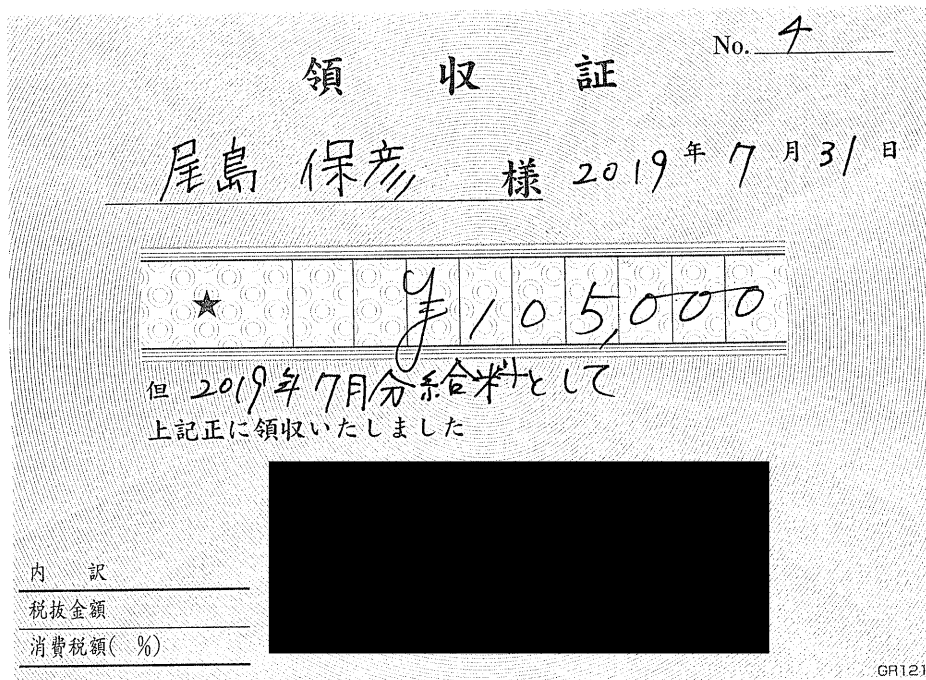 No. 4
領収証
尾島 保彦 様 2019年7月31日
★ ¥105,000
但 2019年7月分給料として
上記正に領収いたしました
内訳
税抜金額
消費税額( %)
GR121